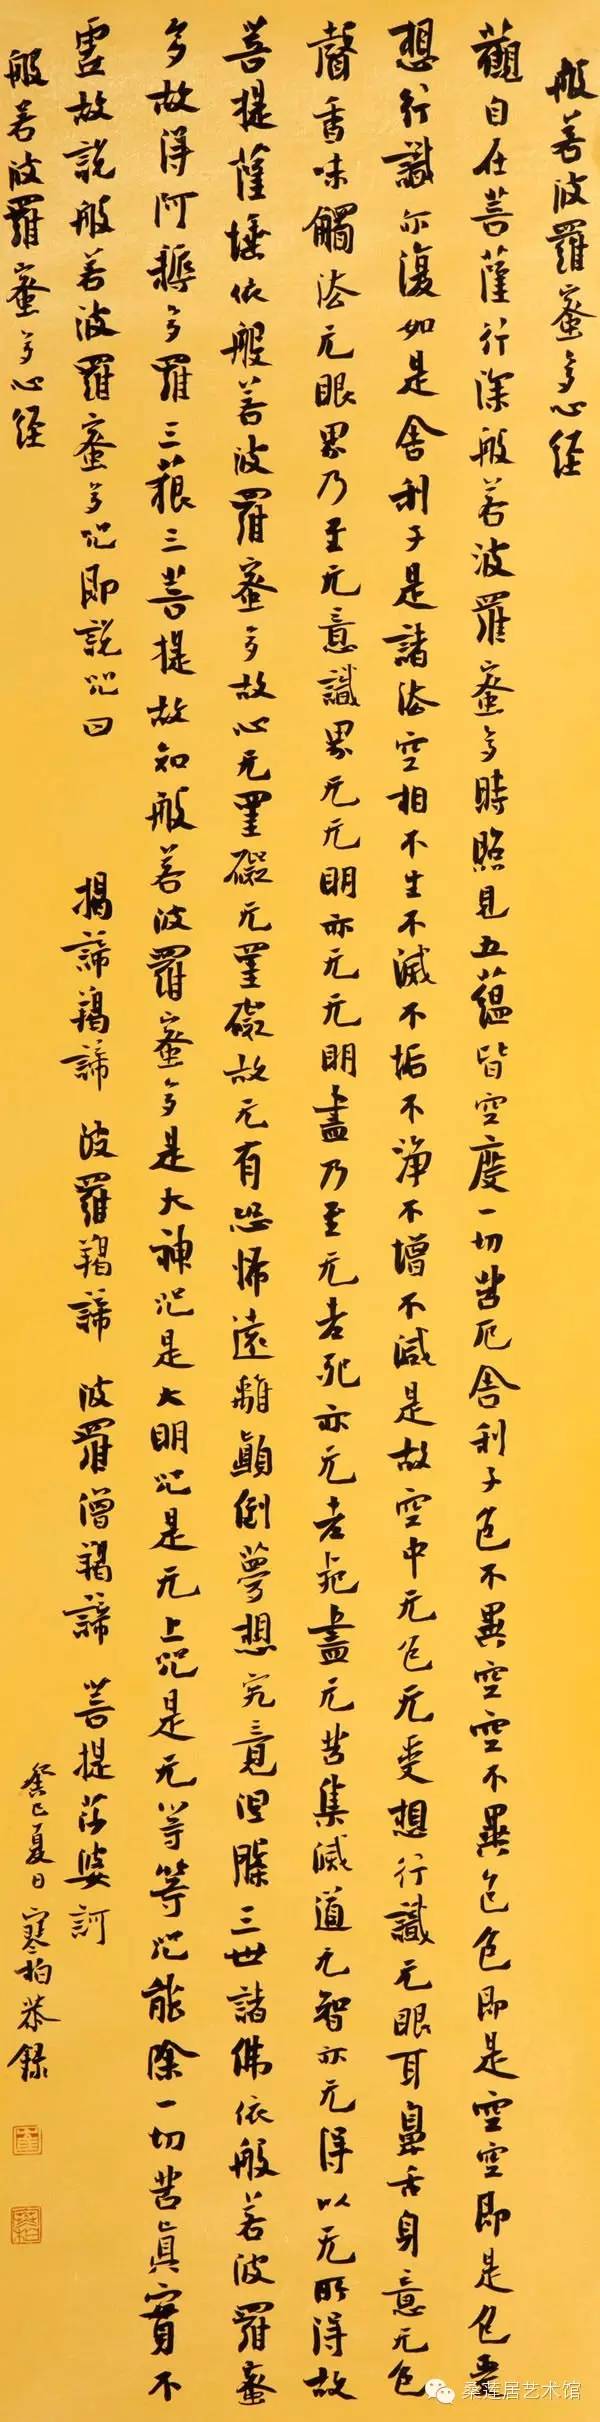 般若波羅蜜多心経
觀自在菩薩行深般若波羅蜜多時照見五蘊皆空度一切苦厄舎利子色不異空空不異色色即是空空即是色受
想行識亦復如是舎利子是諸法空相不生不滅不垢不淨不增不減是故空中无色无受想行識无眼耳鼻舌身意无色
聲香味觸法无眼界乃至无意識界无无明亦无无明盡乃至无老死亦无老死盡无苦集滅道无智亦无得以无所得故
菩提薩埵依般若波羅蜜多故心无罣礙无罣礙故无有恐怖遠離顛倒夢想究竟涅槃三世諸佛依般若波羅蜜
多故得阿耨多羅三藐三菩提故知般若波羅蜜多是大神咒是大明咒是无上咒是无等等咒能除一切苦真實不
虛故說般若波羅蜜多咒即說咒曰 揭諦羯諦 波羅羯諦 波羅僧羯諦 菩提莎婆訶
般若波羅蜜多心経
癸巳夏日寒柏恭録
桑莲居艺术馆